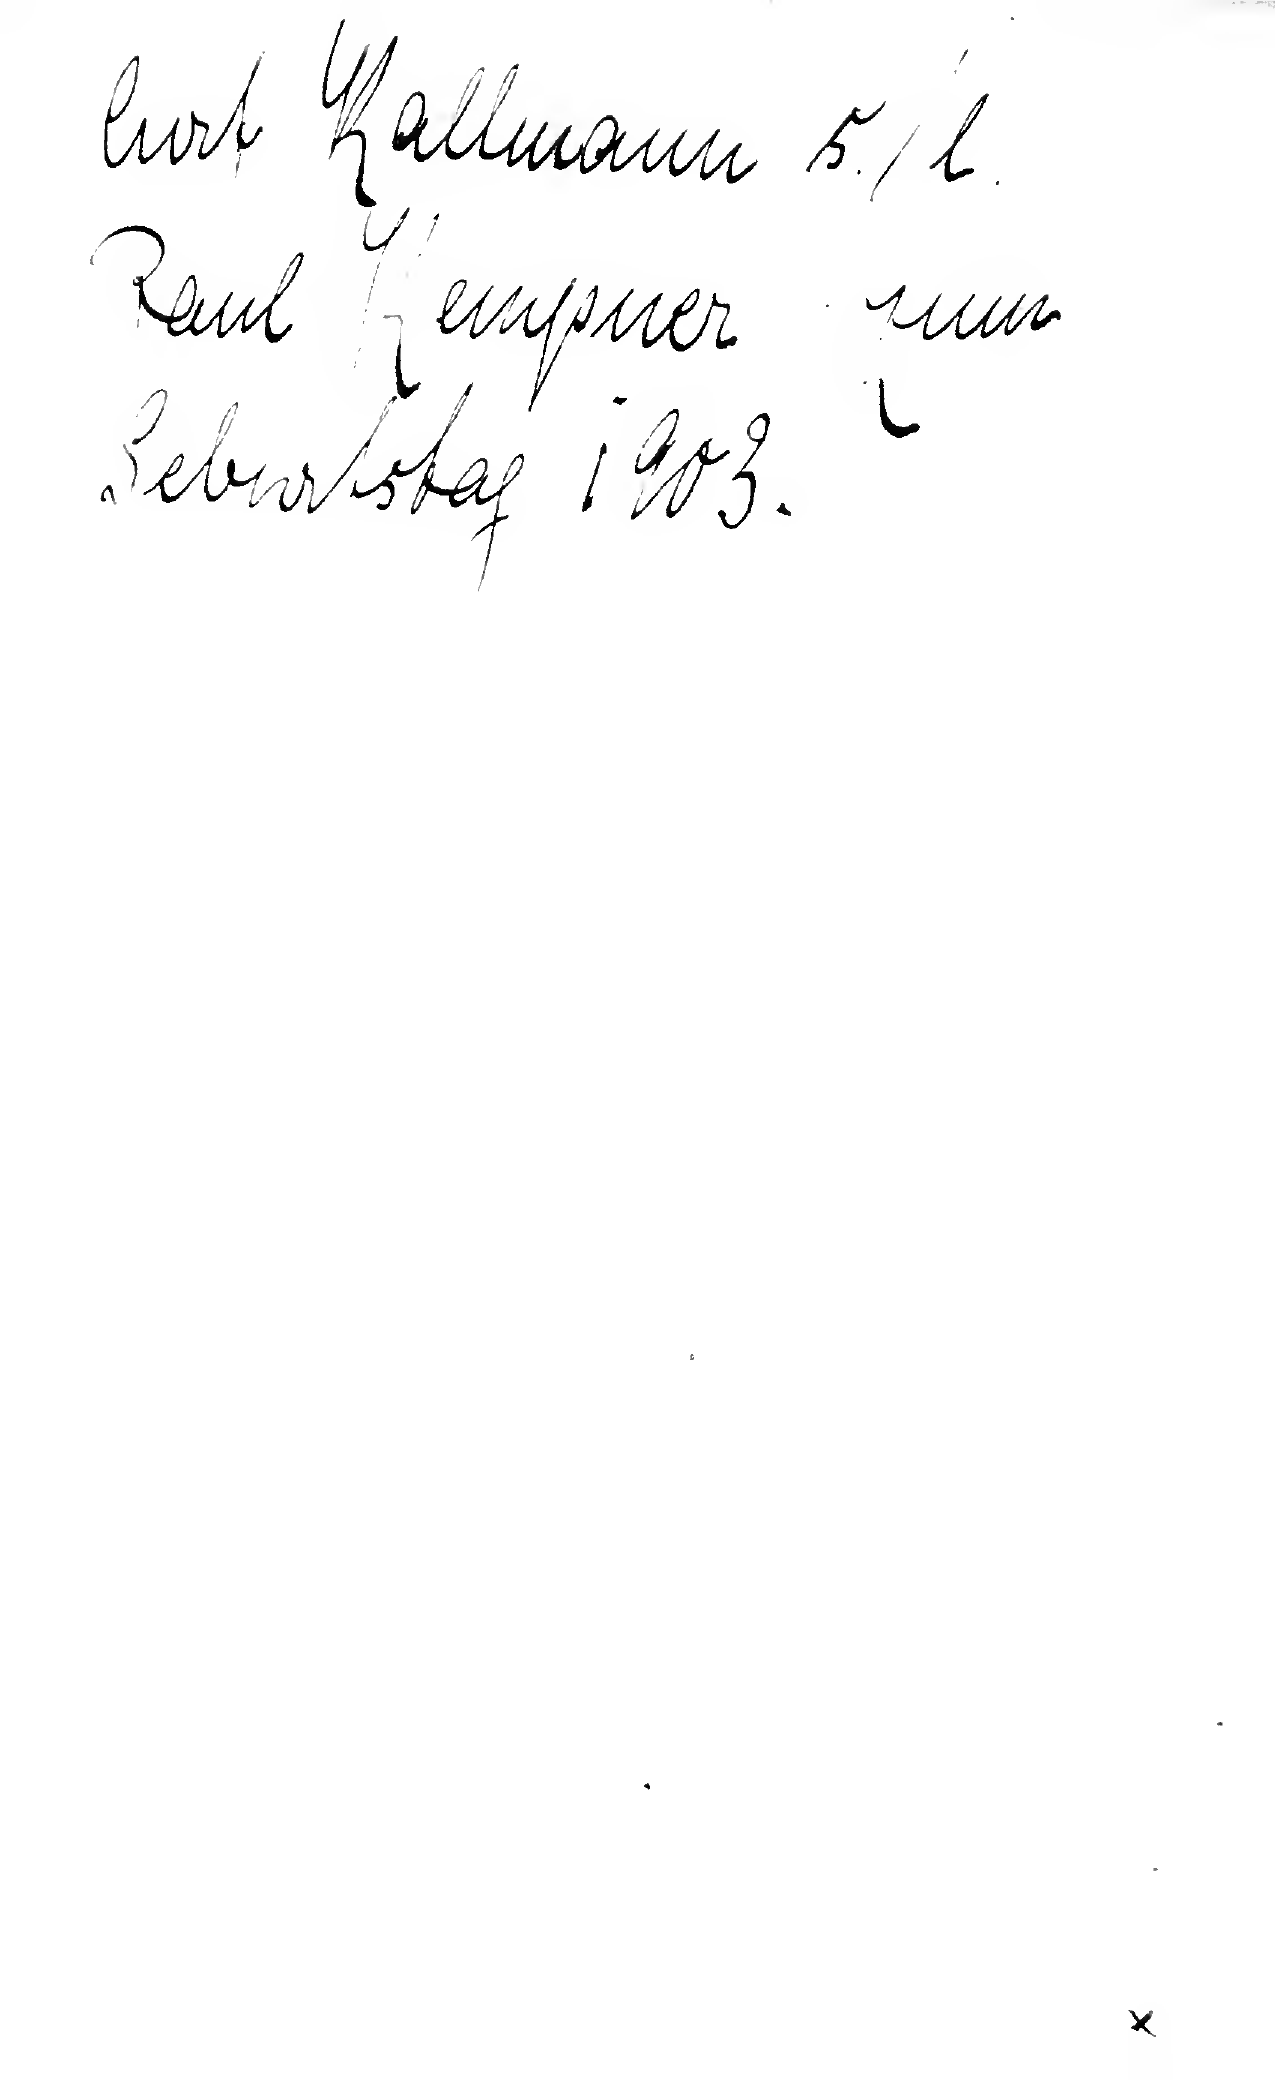 Curt Kallmann s./l.
Paul Kempner zum
Geburtstag 1903.
x